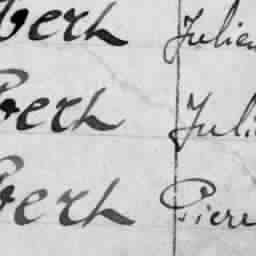 bert Julien
bert Juli
bert Piere